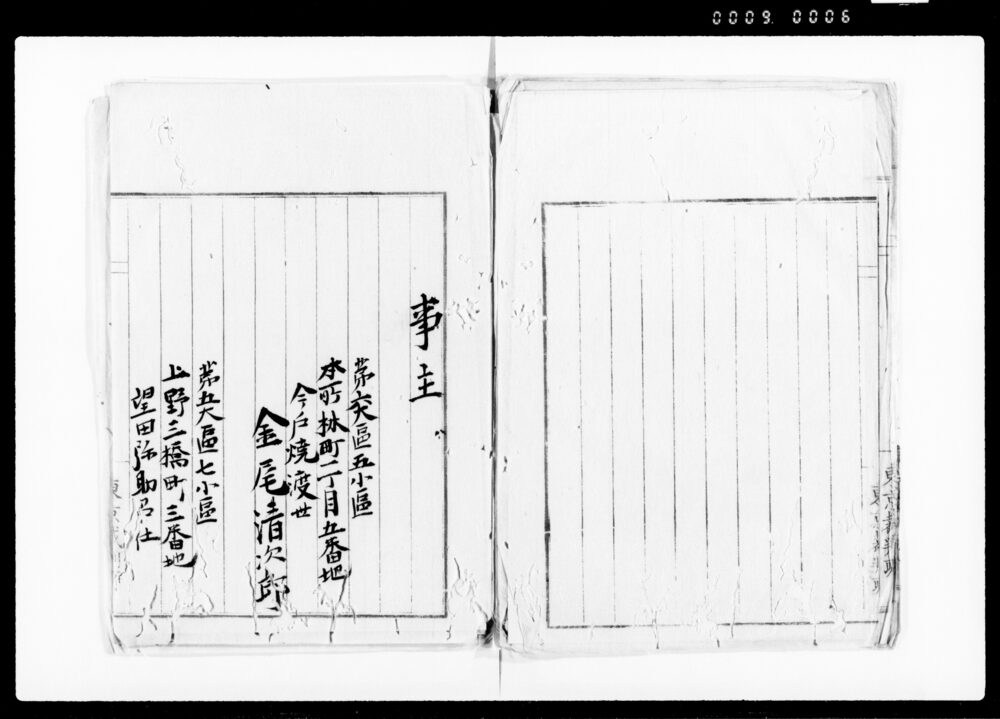 0009 0006
東京裁判所
東京裁判所
事主
第六大區五小區
本所林町二丁目五番地
今戸焼渡世
金尾清次郎
第五大區七小區
上野三橋町三番地
望田弥助召仕